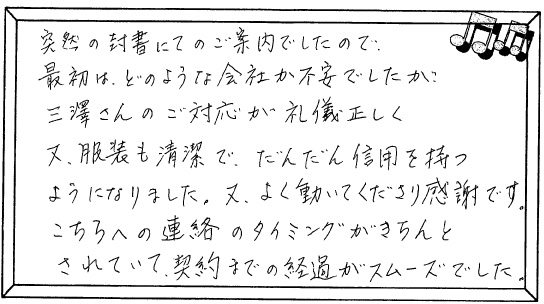 突然の封書にてのご案内でしたので、
最初は、どのような会社か不安でしたが、
三澤さんのご対応が礼儀正しく
又、服装も清潔で、だんだん信用を持つ
ようになりました。又、よく動いてくださり感謝です。
こちらへの連絡のタイミングがきちんと
されていて、契約までの経過がスムーズでした。